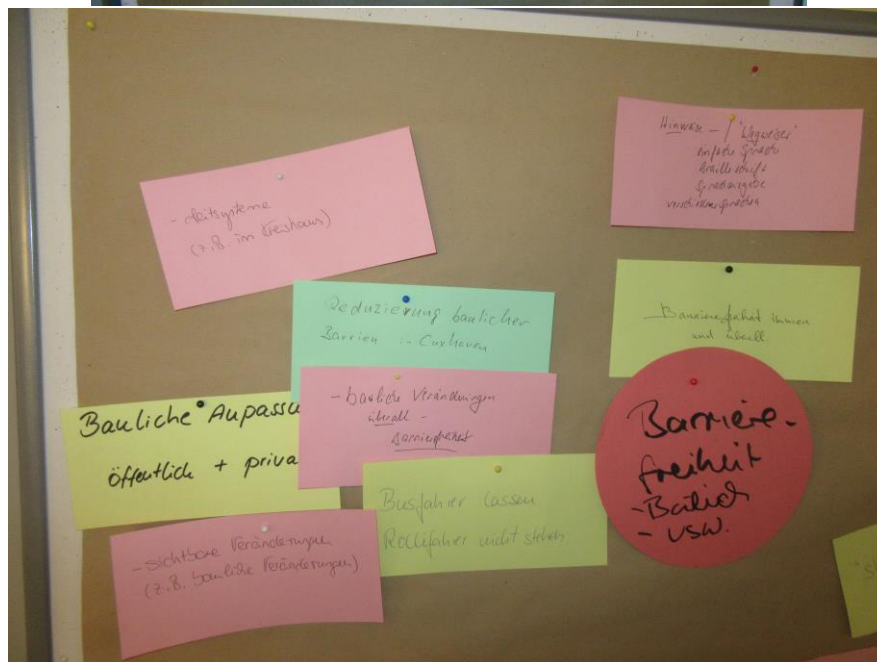 - Leitsysteme
(z.B. im Kreishaus)
Hinweise - "Wegweiser"
einfache Sprache
Brailleschrift
Sprachausgabe
verschiedene Sprachen
Reduzierung baulicher
Barrien in Cuxhaven
Barrierefreiheit immer
und überall
- bauliche Veränderungen
überall -
Barrierefreiheit
Bauliche Anpassu
öffentlich + priva
Barriere-
freiheit
- Baulich
- usw.
Busfahrer lassen
Rollifahrer nicht stehen
- sichtbare Veränderungen
(z.B. bauliche Veränderungen)